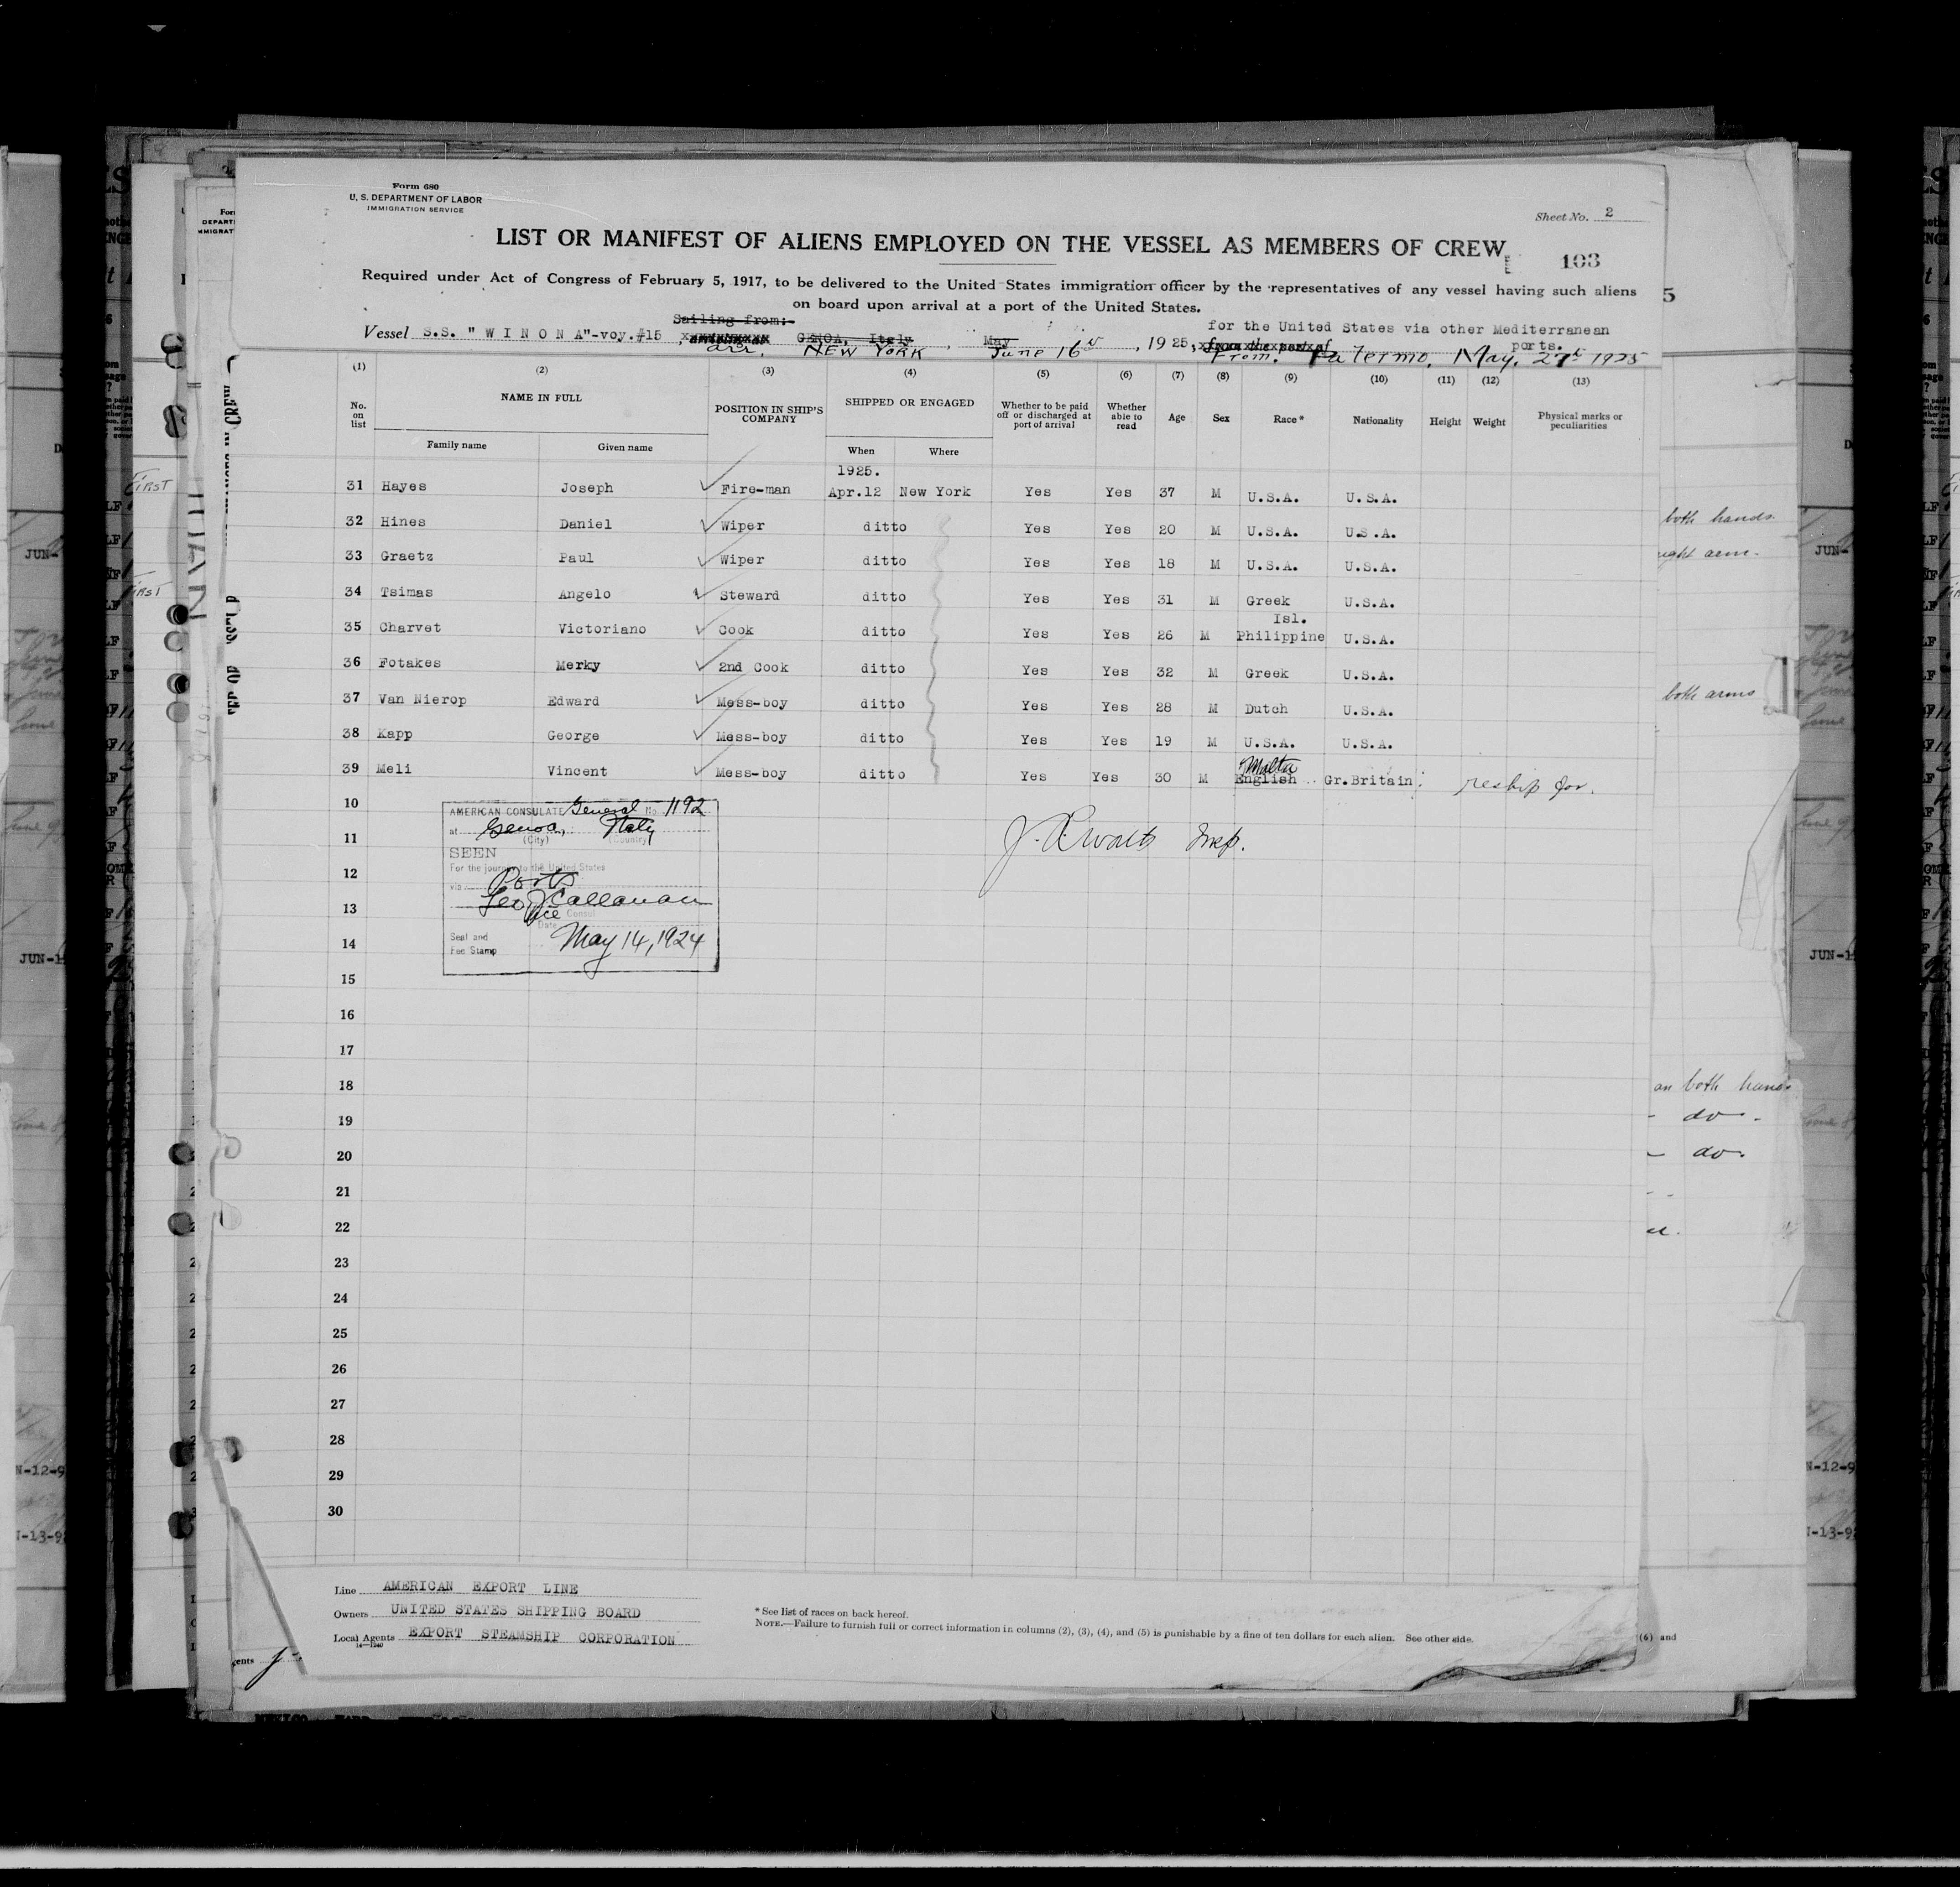 Form 680
U. S. DEPARTMENT OF LABOR
IMMIGRATION SERVICE
Sheet No. 2
LIST OR MANIFEST OF ALIENS EMPLOYED ON THE VESSEL AS MEMBERS OF CREW
103
Required under Act of Congress of February 5, 1917, to be delivered to the United States immigration officer by the representatives of any vessel having such aliens
on board upon arrival at a port of the United States.
Sailing from:- for the United States via other Mediterranean
Vessel S.S. "W I N O N A"-voy.#15, GENOA, Italy, May, 1925, from the port of ports.
arr. NEW YORK June 16th From. Palermo, May, 27th 1925
(1) (2) (3) (4) (5) (6) (7) (8) (9) (10) (11) (12) (13)
No. on list NAME IN FULL POSITION IN SHIP'S COMPANY SHIPPED OR ENGAGED Whether to be paid off or discharged at port of arrival Whether able to read Age Sex Race* Nationality Height Weight Physical marks or peculiarities
Family name Given name When Where
1925.
31 Hayes Joseph Fire-man Apr.12 New York Yes Yes 37 M U.S.A. U.S.A.
32 Hines Daniel Wiper ditto Yes Yes 20 M U.S.A. U.S.A.
33 Graetz Paul Wiper ditto Yes Yes 18 M U.S.A. U.S.A.
34 Tsimas Angelo Steward ditto Yes Yes 31 M Greek U.S.A.
Isl.
35 Charvet Victoriano Cook ditto Yes Yes 26 M Philippine U.S.A.
36 Fotakes Merky 2nd Cook ditto Yes Yes 32 M Greek U.S.A.
37 Van Nierop Edward Mess-boy ditto Yes Yes 28 M Dutch U.S.A.
38 Kapp George Mess-boy ditto Yes Yes 19 M U.S.A. U.S.A.
Malta
39 Meli Vincent Mess-boy ditto Yes Yes 30 M English Gr.Britain. reship for.
10
11
12
13
14
15
16
17
18
19
20
21
22
23
24
25
26
27
28
29
30
AMERICAN CONSULATE General No 1192
at Genoa, Italy
(City) (Country)
SEEN
For the journey to the United States
via Ports
Geo J Callanan
Vice Consul
Date
Seal and
Fee Stamp
May 14, 1924
Insp.
Line AMERICAN EXPORT LINE
Owners UNITED STATES SHIPPING BOARD
Local Agents EXPORT STEAMSHIP CORPORATION
14—1240
* See list of races on back hereof.
NOTE.—Failure to furnish full or correct information in columns (2), (3), (4), and (5) is punishable by a fine of ten dollars for each alien. See other side.
both hands.
both arms
both hands
do
do
(6) and
JUN-
First
First